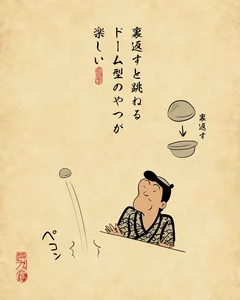 裏返すと跳ねる
ドーム型のやつが
楽しい
裏返す
ペコン